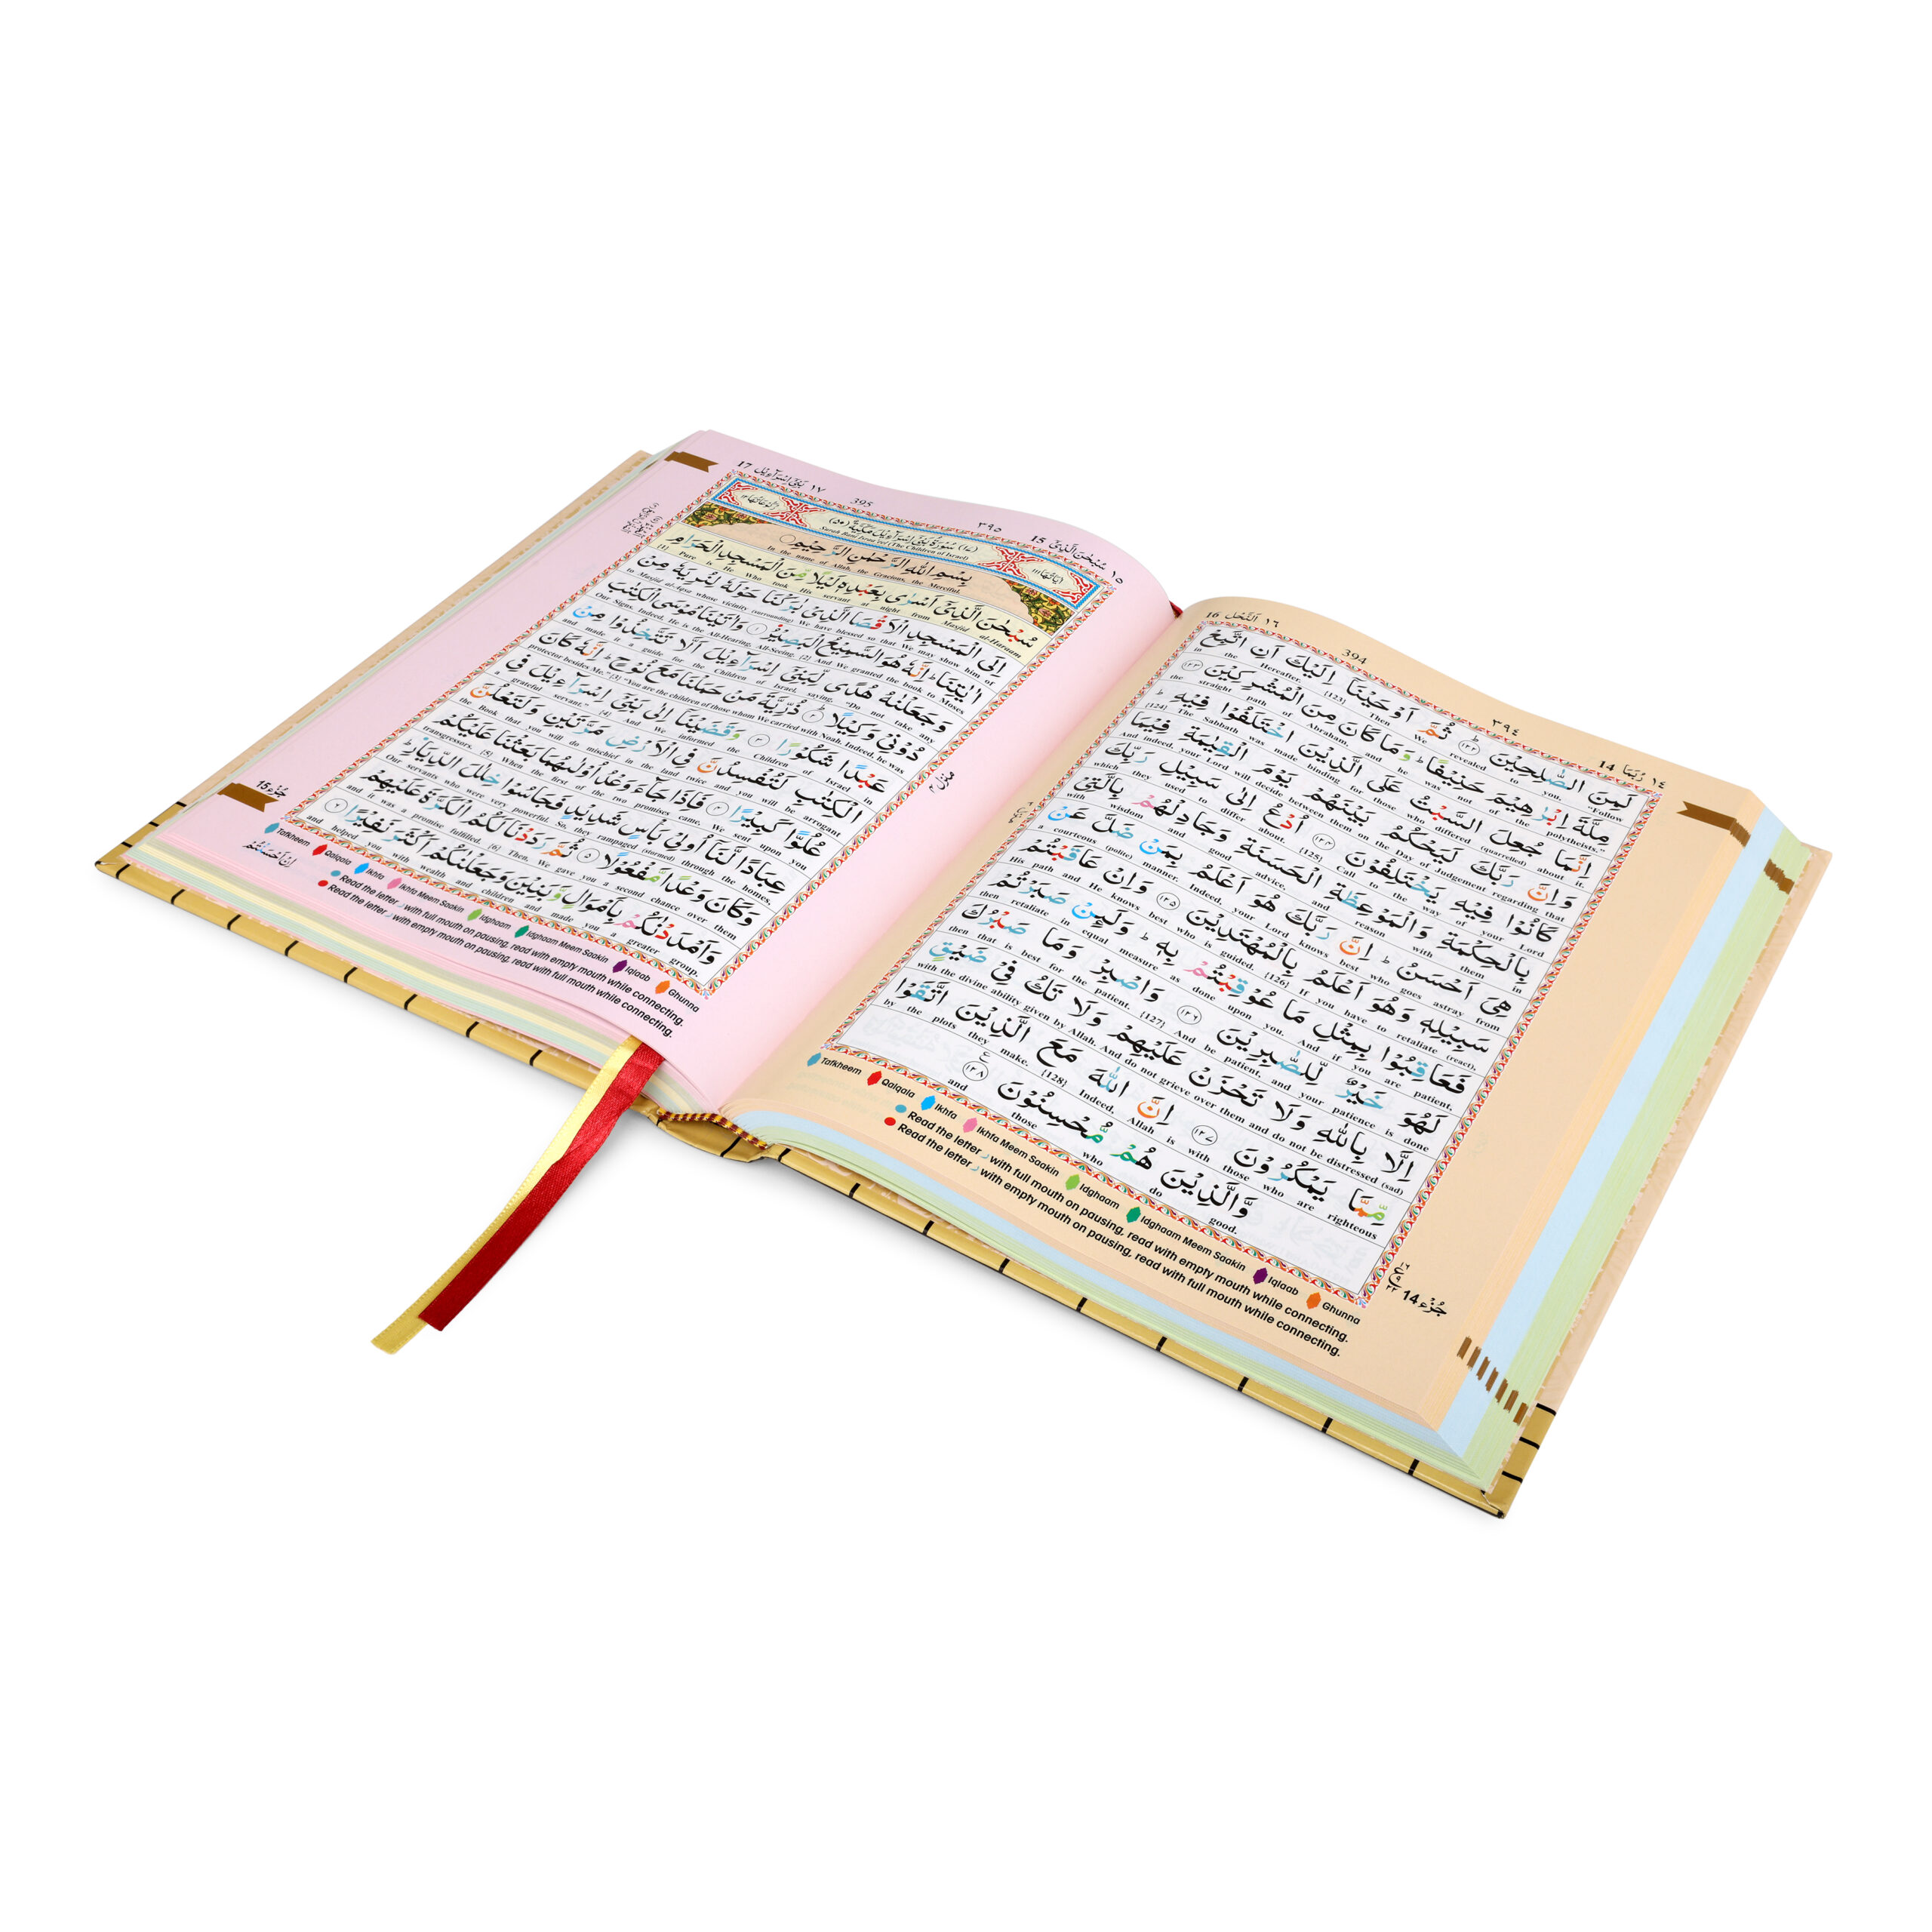 16 اَلنَّحْل ١٦
394
٣٩٤
14 رُبَمَا ١٤
لَمِنَ الصّٰلِحِيْنَ ؕ ﴿١٢٢﴾ ثُمَّ اَوْحَيْنَاۤ اِلَيْكَ اَنِ اتَّبِعْ
in the Hereafter. {123} Then We revealed to you, "Follow
مِلَّةَ اِبْرٰهِيْمَ حَنِيْفًا ؕ وَمَا كَانَ مِنَ الْمُشْرِكِيْنَ ﴿١٢٣﴾
the straight path of Abraham, and he was not of the polytheists."
اِنَّمَا جُعِلَ السَّبْتُ عَلَى الَّذِيْنَ اخْتَلَفُوْا فِيْهِ ؕ
{124} The Sabbath was made binding for those who differed (quarrelled) about it.
وَاِنَّ رَبَّكَ لَيَحْكُمُ بَيْنَهُمْ يَوْمَ الْقِيٰمَةِ فِيْمَا
And indeed, your Lord will decide between them on the Day of Judgement regarding that
كَانُوْا فِيْهِ يَخْتَلِفُوْنَ ﴿١٢٤﴾ اُدْعُ اِلٰى سَبِيْلِ رَبِّكَ
which they used to differ about. {125} Call to the way of your Lord
بِالْحِكْمَةِ وَالْمَوْعِظَةِ الْحَسَنَةِ وَجَادِلْهُمْ بِالَّتِيْ
with wisdom and good advice, and reason with them in
هِيَ اَحْسَنُ ؕ اِنَّ رَبَّكَ هُوَ اَعْلَمُ بِمَنْ ضَلَّ عَنْ
a courteous (polite) manner. Indeed, your Lord knows best who goes astray from
سَبِيْلِهٖ وَهُوَ اَعْلَمُ بِالْمُهْتَدِيْنَ ﴿١٢٥﴾ وَاِنْ عَاقَبْتُمْ
His path and He knows best who is guided. {126} If you have to retaliate (react),
فَعَاقِبُوْا بِمِثْلِ مَا عُوْقِبْتُمْ بِهٖ ؕ وَلَىِٕنْ صَبَرْتُمْ
then retaliate in equal measure as done upon you. And if you are patient,
لَهُوَ خَيْرٌ لِّلصّٰبِرِيْنَ ﴿١٢٦﴾ وَاصْبِرْ وَمَا صَبْرُكَ
then that is best for the patient. {127} And be patient, and your patience is done
اِلَّا بِاللّٰهِ وَلَا تَحْزَنْ عَلَيْهِمْ وَلَا تَكُ فِيْ ضَيْقٍ
with the divine ability given by Allah. And do not grieve over them and do not be distressed (sad)
مِّمَّا يَمْكُرُوْنَ ﴿١٢٧﴾ اِنَّ اللّٰهَ مَعَ الَّذِيْنَ اتَّقَوْا
by the plots they make. {128} Indeed, Allah is with those who are righteous
وَّالَّذِيْنَ هُمْ مُّحْسِنُوْنَ ﴿١٢٨﴾
and those who do good.
Tafkheem Qalqala Ikhfa Ikhfa Meem Saakin Idghaam Idghaam Meem Saakin Iqlaab Ghunna
Read the letter ر with full mouth on pausing, read with empty mouth while connecting.
Read the letter ر with empty mouth on pausing, read with full mouth while connecting.
جُزْء 14
17 بَنِيْۤ اِسْرَآءِيْل ١٧
395
٣٩٥
15 سُبْحٰنَ الَّذِيْۤ ١٥
(١٧) سُوْرَةُ بَنِيْۤ اِسْرَآءِيْلَ مَكِّيَّةٌ (٥٠)
Surah Bani Israa'eel (The Children of Israel)
بِسْمِ اللّٰهِ الرَّحْمٰنِ الرَّحِيْمِ
In the name of Allah, the Gracious, the Merciful.
سُبْحٰنَ الَّذِيْۤ اَسْرٰى بِعَبْدِهٖ لَيْلًا مِّنَ الْمَسْجِدِ الْحَرَامِ
{1} Pure is He Who took His servant at night from Masjid al-Haraam
اِلَى الْمَسْجِدِ الْاَقْصَا الَّذِيْ بٰرَكْنَا حَوْلَهٗ لِنُرِيَهٗ مِنْ
to Masjid al-Aqsa whose vicinity (surrounding) We have blessed so that We may show him of
اٰيٰتِنَا ؕ اِنَّهٗ هُوَ السَّمِيْعُ الْبَصِيْرُ ﴿١﴾ وَاٰتَيْنَا مُوْسَى الْكِتٰبَ
Our Signs. Indeed, He is the All-Hearing, All-Seeing. {2} And We granted the book to Moses
وَجَعَلْنٰهُ هُدًى لِّبَنِيْۤ اِسْرَآءِيْلَ اَلَّا تَتَّخِذُوْا مِنْ
and made it a guide for the Children of Israel, saying, "Do not take any
دُوْنِيْ وَكِيْلًا ﴿٢﴾ ذُرِّيَّةَ مَنْ حَمَلْنَا مَعَ نُوْحٍ ؕ اِنَّهٗ كَانَ
protector besides Me." {3} "You are the children of those whom We carried with Noah. Indeed, he was
عَبْدًا شَكُوْرًا ﴿٣﴾ وَقَضَيْنَاۤ اِلٰى بَنِيْۤ اِسْرَآءِيْلَ فِي
a grateful servant." {4} And We informed the Children of Israel in
الْكِتٰبِ لَتُفْسِدُنَّ فِي الْاَرْضِ مَرَّتَيْنِ وَلَتَعْلُنَّ
the Book that you will do mischief in the land twice and you will be arrogant
عُلُوًّا كَبِيْرًا ﴿٤﴾ فَاِذَا جَآءَ وَعْدُ اُوْلٰىهُمَا بَعَثْنَا عَلَيْكُمْ
transgressors. {5} When the first of the two promises came, We sent upon you
عِبَادًا لَّنَاۤ اُولِيْ بَاْسٍ شَدِيْدٍ فَجَاسُوْا خِلٰلَ الدِّيَارِ ؕ
Our servants who were very powerful. So, they rampaged (stormed) through the homes,
وَكَانَ وَعْدًا مَّفْعُوْلًا ﴿٥﴾ ثُمَّ رَدَدْنَا لَكُمُ الْكَرَّةَ عَلَيْهِمْ
and it was a promise fulfilled. {6} Then, We gave you a second chance over them
وَاَمْدَدْنٰكُمْ بِاَمْوَالٍ وَّبَنِيْنَ وَجَعَلْنٰكُمْ اَكْثَرَ نَفِيْرًا ﴿٦﴾
and helped you with wealth and children and made you a greater group.
Tafkheem Qalqala Ikhfa Ikhfa Meem Saakin Idghaam Idghaam Meem Saakin Iqlaab Ghunna
Read the letter ر with full mouth on pausing, read with empty mouth while connecting.
Read the letter ر with empty mouth on pausing, read with full mouth while connecting.
جُزْء 15
اِنْ اَحْسَنْتُمْ